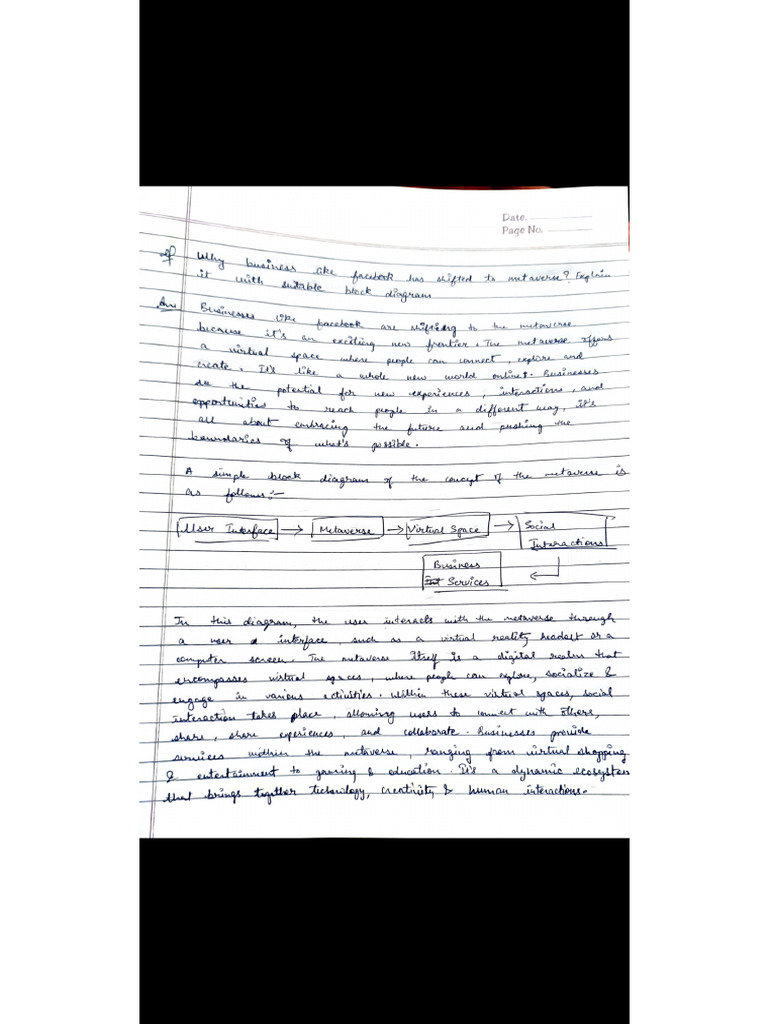 Date.
Page No.
Q Why business like facebook has shifted to metaverse? Explain
it with suitable block diagram
Ans Businesses like facebook are shifting to the metaverse
because it's an exciting new frontier. The metaverse offers
a virtual space where people can connect, explore and
create. It's like a whole new world online. Businesses
see the potential for new experiences, interactions, and
opportunities to reach people in a different way, it's
all about embracing the future and pushing the
boundaries of what's possible.
A simple block diagram of the concept of the metaverse is
as follows:-
User Interface → Metaverse → Virtual Space → Social
Interactions
Business
Services
In this diagram, the user interacts with the metaverse through
a user interface, such as a virtual reality headset or a
computer screen. The metaverse itself is a digital realm that
encompasses virtual spaces, where people can explore, socialize &
engage in various activities. Within these virtual spaces, social
interaction takes place, allowing users to connect with others,
share, share experiences, and collaborate. Businesses provide
services within the metaverse, ranging from virtual shopping
& entertainment to gaming & education. It's a dynamic ecosystem
that brings together technology, creativity & human interactions.